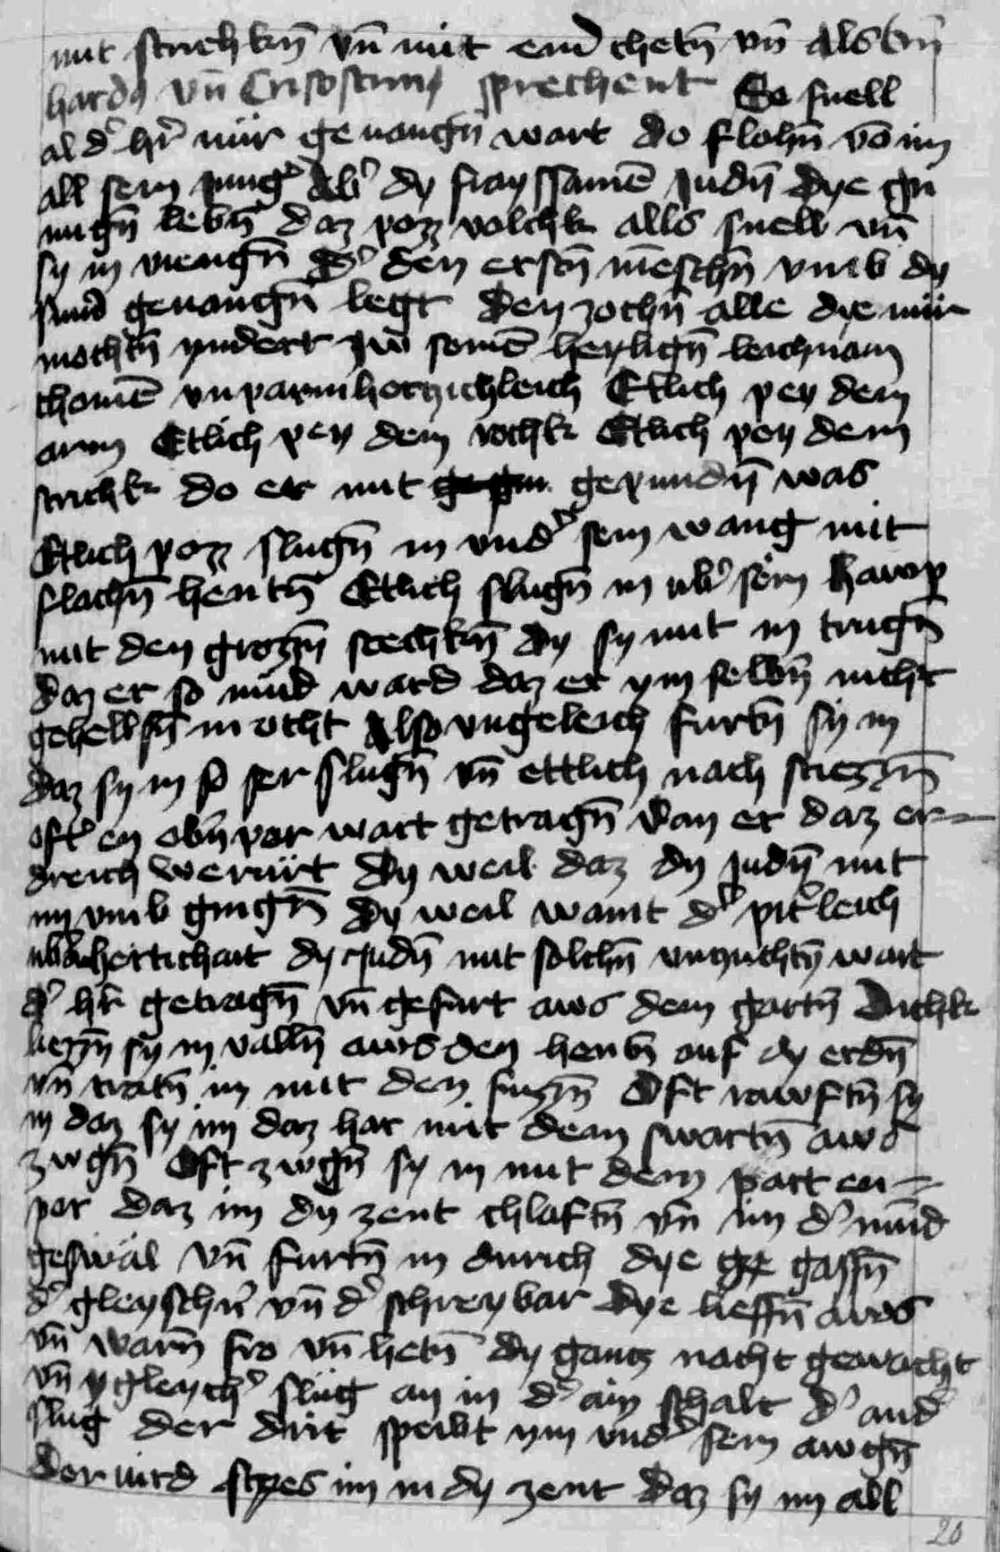 mit strichkn̄ vn̄ mit eind chetn̄ vn̄ als bn̄
hardy vn̄ Crisostimꝰ sprechent So snell
al dʼ hʼr nür geuangn̄ wart do flohn̄ võ im
all sein jungʼ Abʼ dy frayssamē judn̄ dye gri
migñ lebn̄ daz pozz volchk alls snell vn̄
sy in viengn̄ den erstn̄ mēschn̄ vmb dy
sund geuangn̄ legt Den zochn̄ alle dye nür
mochtn̄ yndert zw seinē heylign̄ leichnam
chomē vnparmherczichleich Etlich pey dem
arm Etlich pey dem rochk Etlich pey dem
strichk do er mit gepundn̄ was
Etlich pozz slugn̄ in vndʼ sein wang mit
flachn̄ hentn̄ Etlich slugn̄ in vbʼ sein hawp
mit den grozzn̄ stechkn̄ dy sy mit in trugn̄
daz er so müd ward daz er ym selbn̄ nicht
gehelffn̄ mocht Also vngeleich furtn̄ sy in
daz sy in so ser slugn̄ vn̄ ettlich nach stiezzn̄
oftʼ en obn̄ par wart getragn̄ dan er daz er-
dreich werürt Dy weil daz dy judn̄ mit
im vmb gingn̄ Dy weil waint dʼ pitʼleich
hertichait dy judn̄ mit solchn̄ vnzuchtn̄ wart
dʼ hʼr getragn̄ vn̄ gefurt aws dem gartn̄ Dichk
liezzn̄ sy in valln̄ aws den hentn̄ auf dy erdn̄
vn̄ tratn̄ in mit den fuzzn̄ Oft rawftn̄ sy
in daz sy im daz har mit dem swartn̄ aws
zwgn̄ Oft zwgn̄ sy in mit dem part en-
por daz im dy zent chlaftn̄ vn̄ im dʼ mūd
geswäl vn̄ furtn̄ in durich dye gassn̄
dʼ gleyschnʼ vn̄ dʼ schreybar dye lieffn̄ aws
vn̄ warn̄ fro vn̄ hetn̄ dy gantz nacht gewacht
vn̄ ygleychʼ slug an in dʼ ain schalt dʼ andʼ
slug der drit speibt ym vndʼ sein awgn̄
der vird stozz im in dy zent Daz sy im all
20